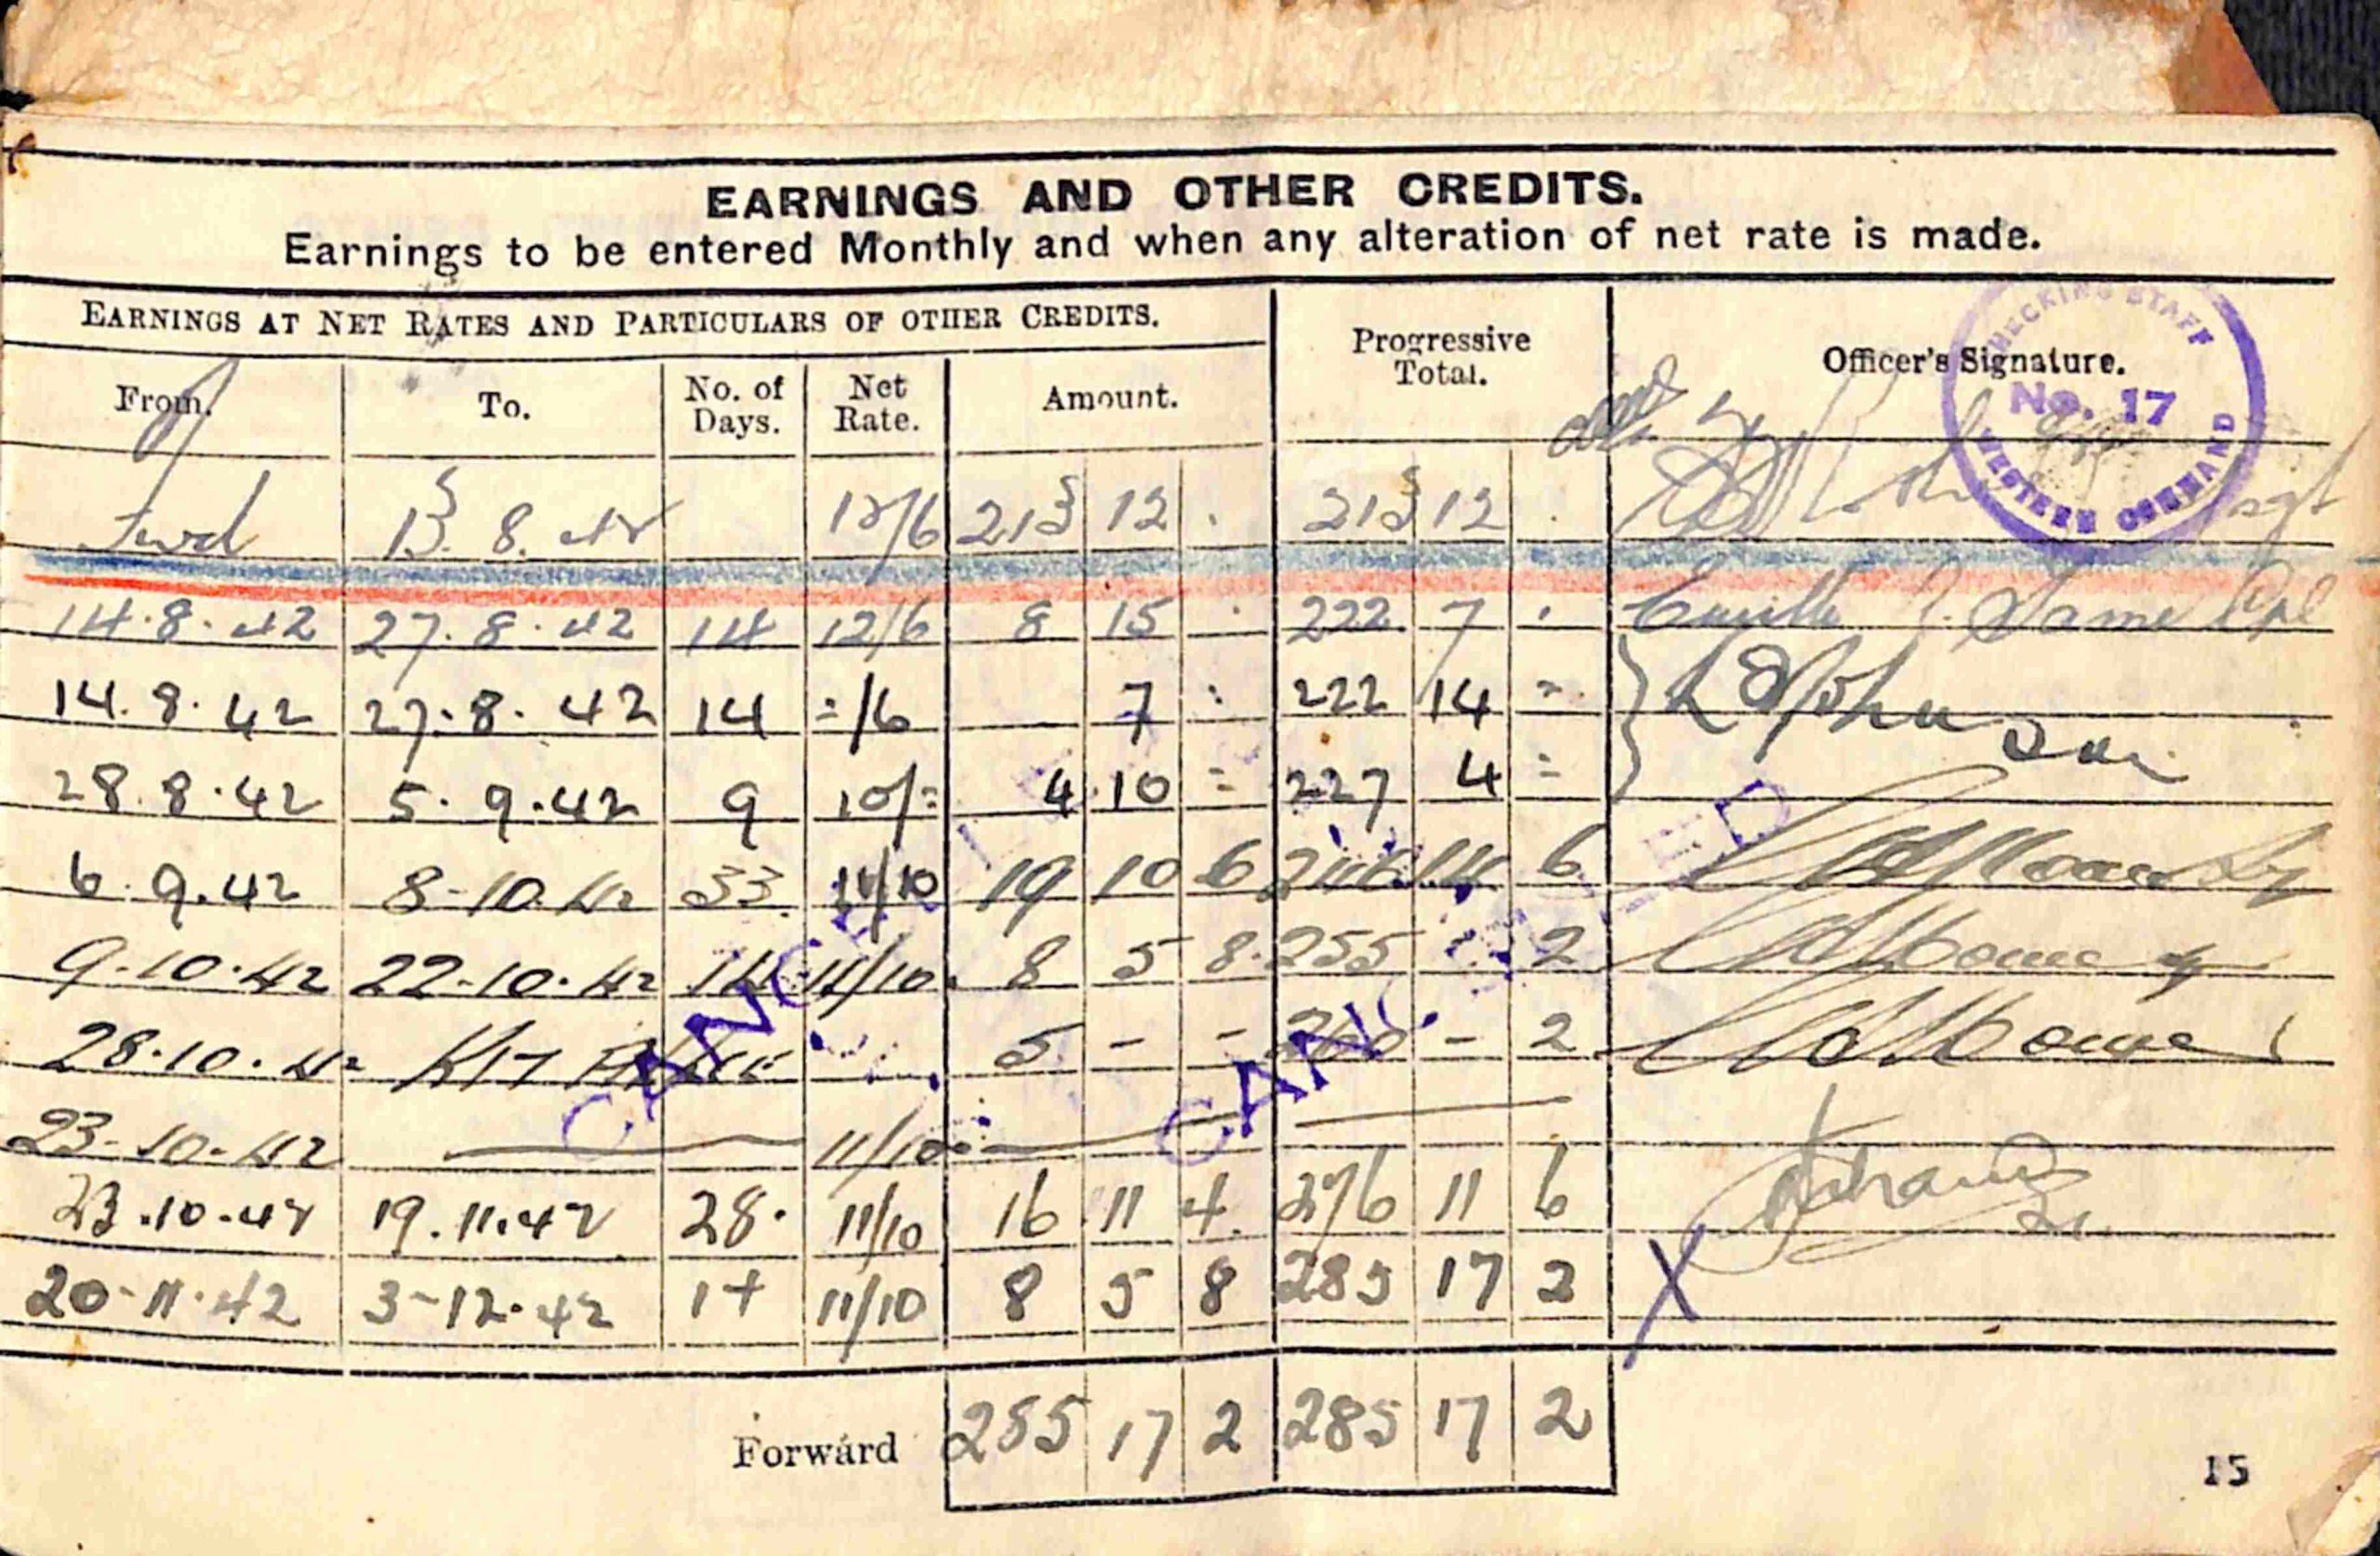 EARNINGS AND OTHER CREDITS.
Earnings to be entered Monthly and when any alteration of net rate is made.
EARNINGS AT NET RATES AND PARTICULARS OF OTHER CREDITS.
Progressive Total.
Officer's Signature.
CHECKING STAFF
No. 17
WESTERN COMMAND
From. To. No. of Days. Net Rate. Amount.
fwd 13. 8. 42 12/6 213 12 . 213 12 .
14.8.42 27.8.42 14 12/6 8 15 . 222 7 . Cpl
14.8.42 27.8.42 14 =/6 7 : 222 14 =
28.8.42 5.9.42 9 10/= 4 10 = 227 4 =
6.9.42 8-10.42 33. 11/10 19 10 6 246 14 6
9.10.42 22-10.42 14 11/10. 8 5 8. 255 - 2
28.10.42 5 - - 260 - 2
23-10.42 11/10
23.10.42 19.11.42 28. 11/10 16 11 4. 276 11 6
20-11.42 3-12.42 14 11/10 8 5 8 285 17 2
X
CANCELLED
CANCELLED
Forward 285 17 2 285 17 2
15